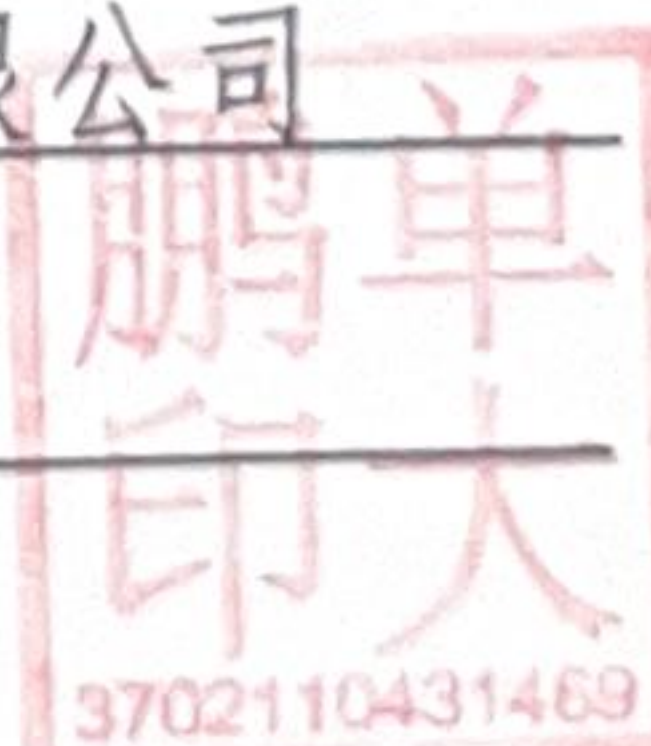 限公司
单大
鹏印
3702110431469